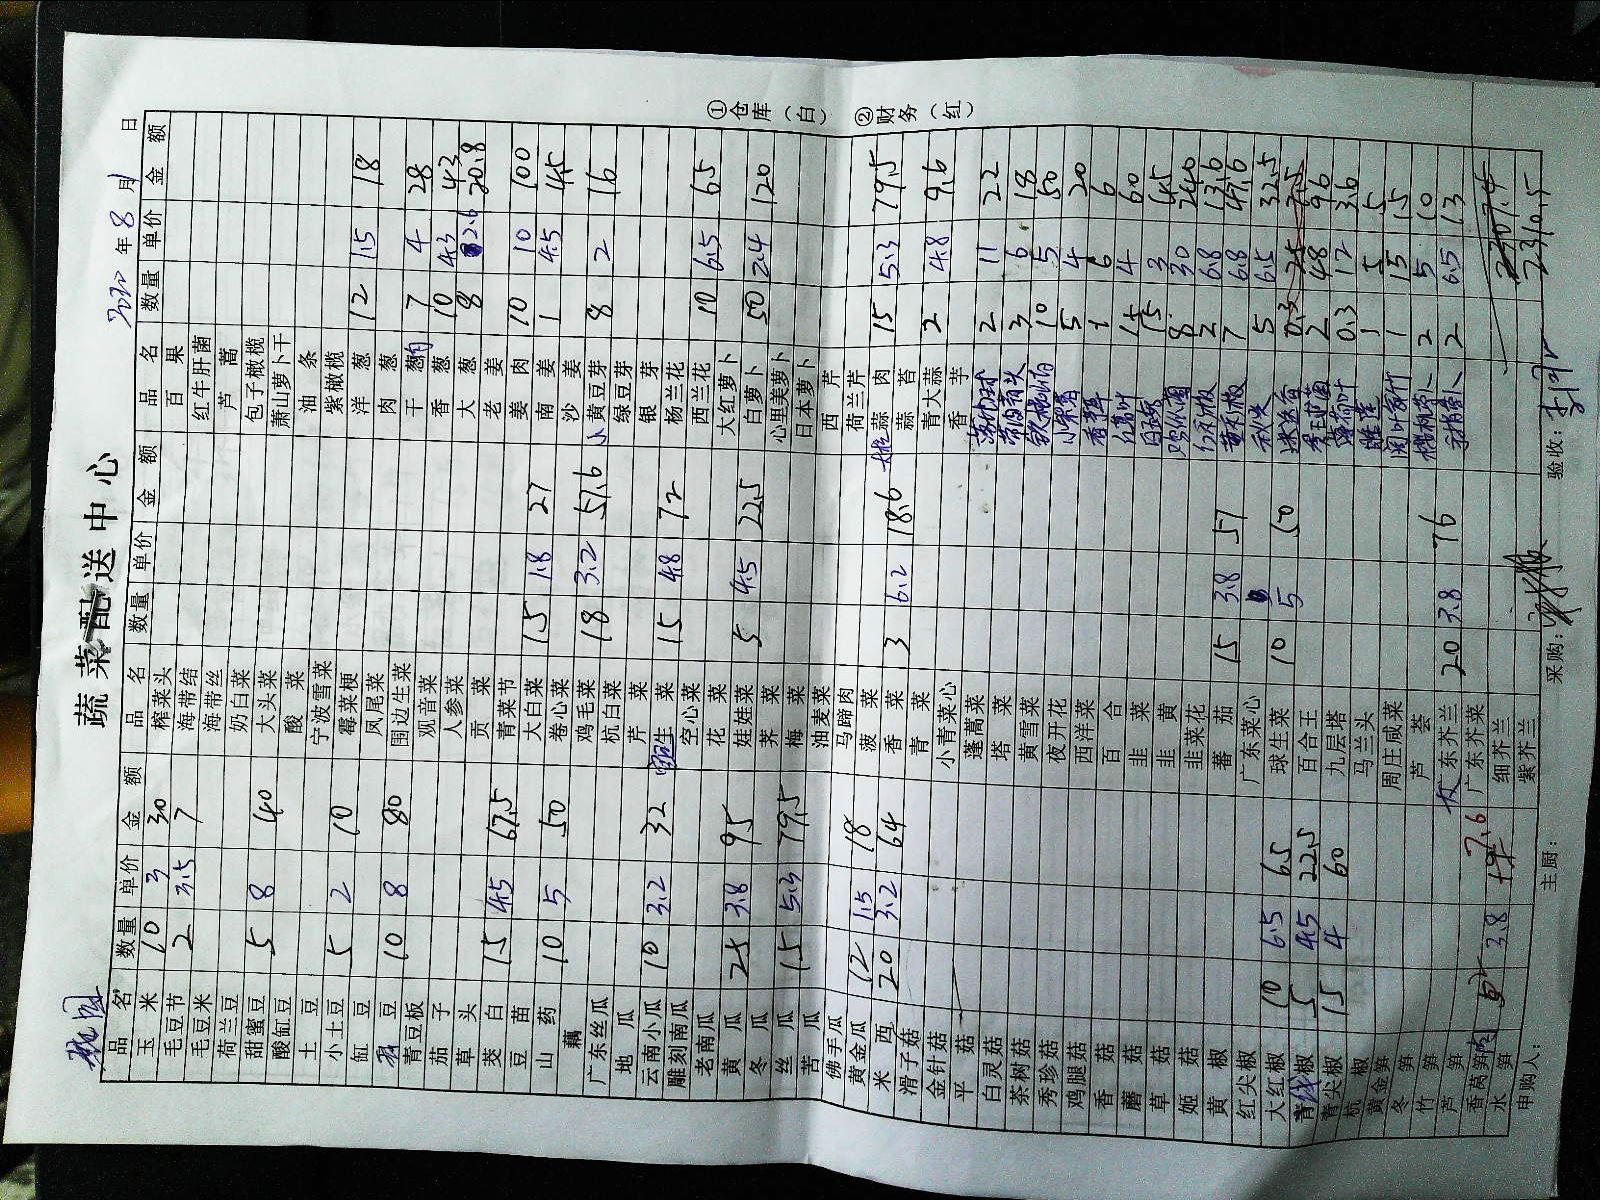 蔬菜配送中心
2020年8月 日
品名 数量 单价 金额 品名 数量 单价 金额 品名 数量 单价 金额
玉米 10 3 30 榨菜头 百果
毛豆节 2 3.5 7 海带结 红牛肝菌
毛豆米 海带丝 芦蒿
荷兰豆 奶白菜 包子橄榄
甜蜜豆 5 8 40 大头菜 萧山萝卜干
酸缸豆 酸菜 油条
土豆 宁波雪菜 紫橄榄
小土豆 5 2 10 霉菜梗 洋葱 12 1.5 18
缸豆 凤尾菜 肉葱
豆 10 8 80 围边生菜 干葱肉 7 4 28
青豆板 观音菜 香葱 10 4.3 43
茄子 人参菜 大葱 8 2.6 20.8
草头 贡菜 老姜
茭白 15 4.5 67.5 青菜节 姜肉 10 10 100
豆苗 大白菜 15 1.8 27 南姜 1 45 45
山药 10 5 50 卷心菜 沙姜
藕 鸡毛菜 18 3.2 57.6 小黄豆芽 8 2 16
广东丝瓜 杭白菜 绿豆芽
地瓜 芹菜 银芽
云南小瓜 10 3.2 32 生菜 15 4.8 72 杨兰花
雕刻南瓜 空心菜 西兰花 10 6.5 65
老南瓜 花菜 大红萝卜
黄瓜 25 3.8 95 娃娃菜 5 4.5 22.5 白萝卜 50 2.4 120
冬瓜 荠菜 心里美萝卜
丝瓜 15 5.3 79.5 梅菜 日本萝卜
苦瓜 油麦菜 西芹
佛手瓜 马蹄肉 荷兰芹
黄金瓜 12 1.5 18 菠菜 蒜肉 15 5.3 79.5
米西 20 3.2 64 香菜 3 6.2 18.6 蒜苔
滑子菇 青菜 青大蒜 2 4.8 9.6
金针菇 小青菜心 香芋
平菇 蓬蒿菜 2 11 22
白灵菇 塔菜 3 6 18
茶树菇 黄雪菜 10 5 50
秀珍菇 夜开花 5 4 20
鸡腿菇 西洋菜 1 6 6
香菇 百合 15 4 60
蘑菇 韭菜 15 3 45
草菇 韭黄 8 30 240
姬菇 韭菜花 2 6.8 13.6
黄椒 蕃茄 15 3.8 57 7 6.8 47.6
红尖椒 广东菜心 5 6.5 32.5
大红椒 10 6.5 65 球生菜 10 5 50 迷迭香 0.3 25 7.5
青线椒 5 4.5 22.5 百合王 2 48 96
青尖椒 15 4 60 九层塔 薄荷叶 0.3 12 3.6
杭椒 马兰头 1 5 5
黄金笋 周庄咸菜 1 15 15
冬笋 芦荟 2 5 10
竹笋 广东芥兰 20 3.8 76 2 6.5 13
芦笋 广东芥菜
香莴笋 3.8 7.6 细芥兰 2307.4
水笋 紫芥兰 2310.5
申购人: 主厨: 采购: 验收:
①仓库(白) ②财务(红)